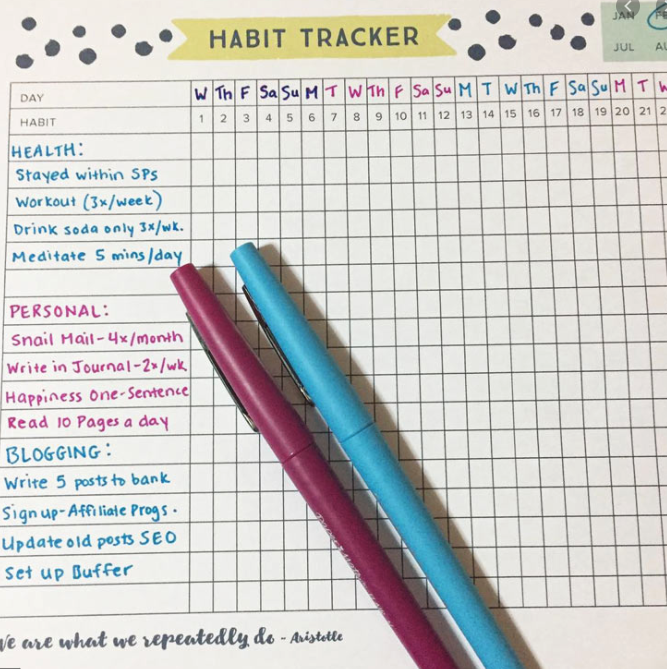 HABIT TRACKER
JAN
JUL
DAY W Th F Sa Su M T W Th F Sa Su M T W Th F Sa Su M T
HABIT 1 2 3 4 5 6 7 8 9 10 11 12 13 14 15 16 17 18 19 20 21
HEALTH:
Stayed within SPs
Workout (3x/week)
Drink soda only 3x/wk.
Meditate 5 mins/day
PERSONAL:
Snail Mail-4x/month
Write in Journal-2x/wk
Happiness One-Sentence
Read 10 Pages a day
BLOGGING:
Write 5 posts to bank
Sign up-Affiliate Progs.
Update old posts SEO
Set up Buffer
are what we repeatedly do - Aristotle